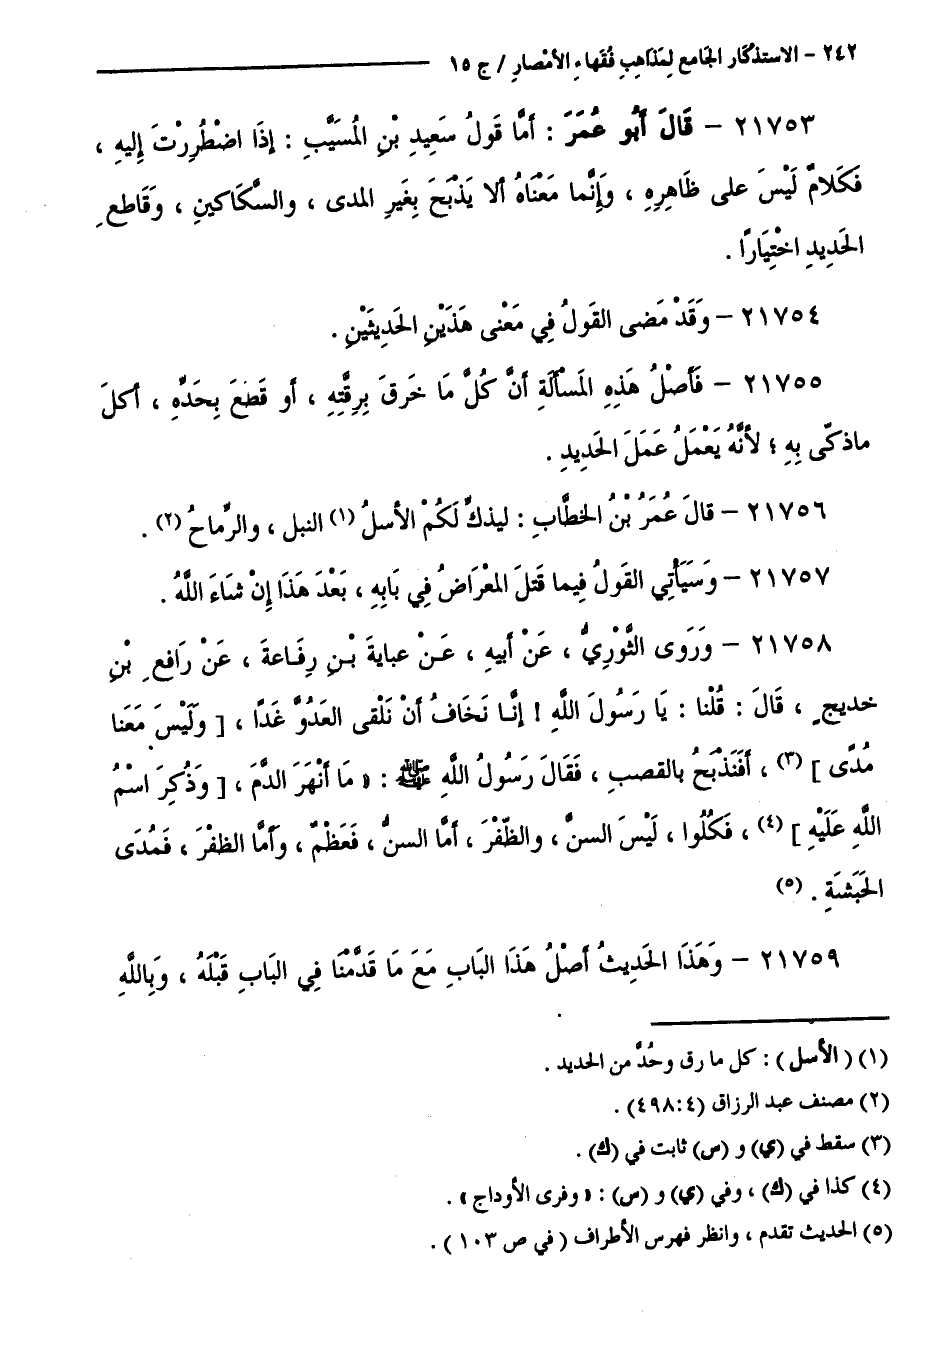 ٢٤٢ – الاستذكار الجامع لمذاهب فقهاء الأمصار / ج ١٥
٢١٧٥٣ – قَالَ أَبُو عُمَرَ : أمَّا قَولُ سَعِيدِ بْنِ المُسَيَّبِ : إذَا اضْطُرِرْتَ إِليهِ ،
فَكَلامٌ لَيْسَ على ظَاهِرِهِ ، وَإِنَّما مَعْنَاهُ ألا يَذْبَحَ بِغَيرِ المدى ، والسكَّاكينِ ، وقَاطعِ
الحَديدِ اخْتِيَارًا .
٢١٧٥٤ – وَقَدْ مَضى القَولُ فِي مَعْنى هَذَيْنِ الحَديثَيْنِ .
٢١٧٥٥ – فَأصْلُ هَذِهِ المَسْألَةِ أنَّ كُلَّ مَا خَرقَ بِرِقَّتِهِ ، أو قَطعَ بِحَدِّهِ ، أكلَ
ماذكّى بِهِ ؛ لأنَّهُ يَعْمَلُ عَمَلَ الحَديدِ .
٢١٧٥٦ – قالَ عُمَرُ بْنُ الخطَّابِ : ليذكِّ لَكُمْ الأسلُ (١) النبل ، والرِّماحُ (٢) .
٢١٧٥٧ – وَسَيَأْتِي القَولُ فِيما قَتلَ المعْرَاضُ فِي بَابِهِ ، بَعْدَ هَذَا إِنْ شَاءَ اللَّهُ .
٢١٧٥٨ – وَرَوَى الثَّوْرِيُّ ، عَنْ أَبيهِ ، عَـنْ عبايةَ بْـنِ رِفَـاعةَ ، عَنْ رَافعِ بْنِ
خديجٍ ، قَالَ : قُلْنا : يَا رَسُولَ اللَّهِ ! إِنَّـا نَخَافُ أَنْ نَلْقى العَدُوَّ غَدًا ، [ وَلَيْسَ مَعَنا
مُدًى ] (٣) ، أفَنَذْبَحُ بالقصبِ ، فَقَالَ رَسُولُ اللَّهِ ﷺ : « مَا أَنْهَرَ الدَّمَ ، [ وَذُكِرَ اسْمُ
اللَّهِ عَلَيْهِ ] (٤) ، فَكُلُوا ، لَيْسَ السنَّ ، والظّفْرَ ، أمَّا السنُّ ، فَعَظْمٌ ، وَأمَّا الظفْرَ ، فَمُدَى
الحَبَشَةِ . (٥)
٢١٧٥٩ – وَهَذَا الحَديثُ أصْلُ هَذَا البَابِ مَعَ مَا قَدَّمْنَا فِي البَابِ قَبْلَهُ ، وَبِاللَّهِ
(١) ( الأسل ) : كل ما رق وحُدَّ من الحديد .
(٢) مصنف عبد الرزاق (٤ : ٤٩٨) .
(٣) سقط في (ي) و (س) ثابت في (ك) .
(٤) كذا في (ك) ، وفي (ي) و (س) : « وفرى الأوداج » .
(٥) الحديث تقدم ، وانظر فهرس الأطراف ( في ص ١٠٣ ) .